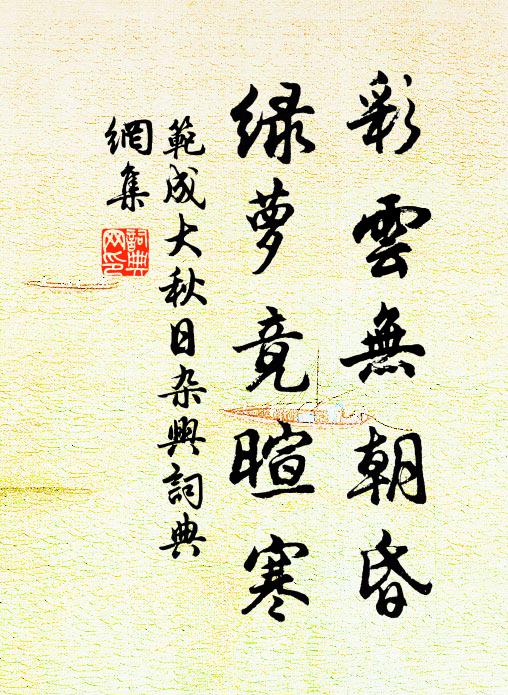 彩雲無朝昏
緑萝竟暄寒
範成大秋日杂興詞典
網集
詞典
网印